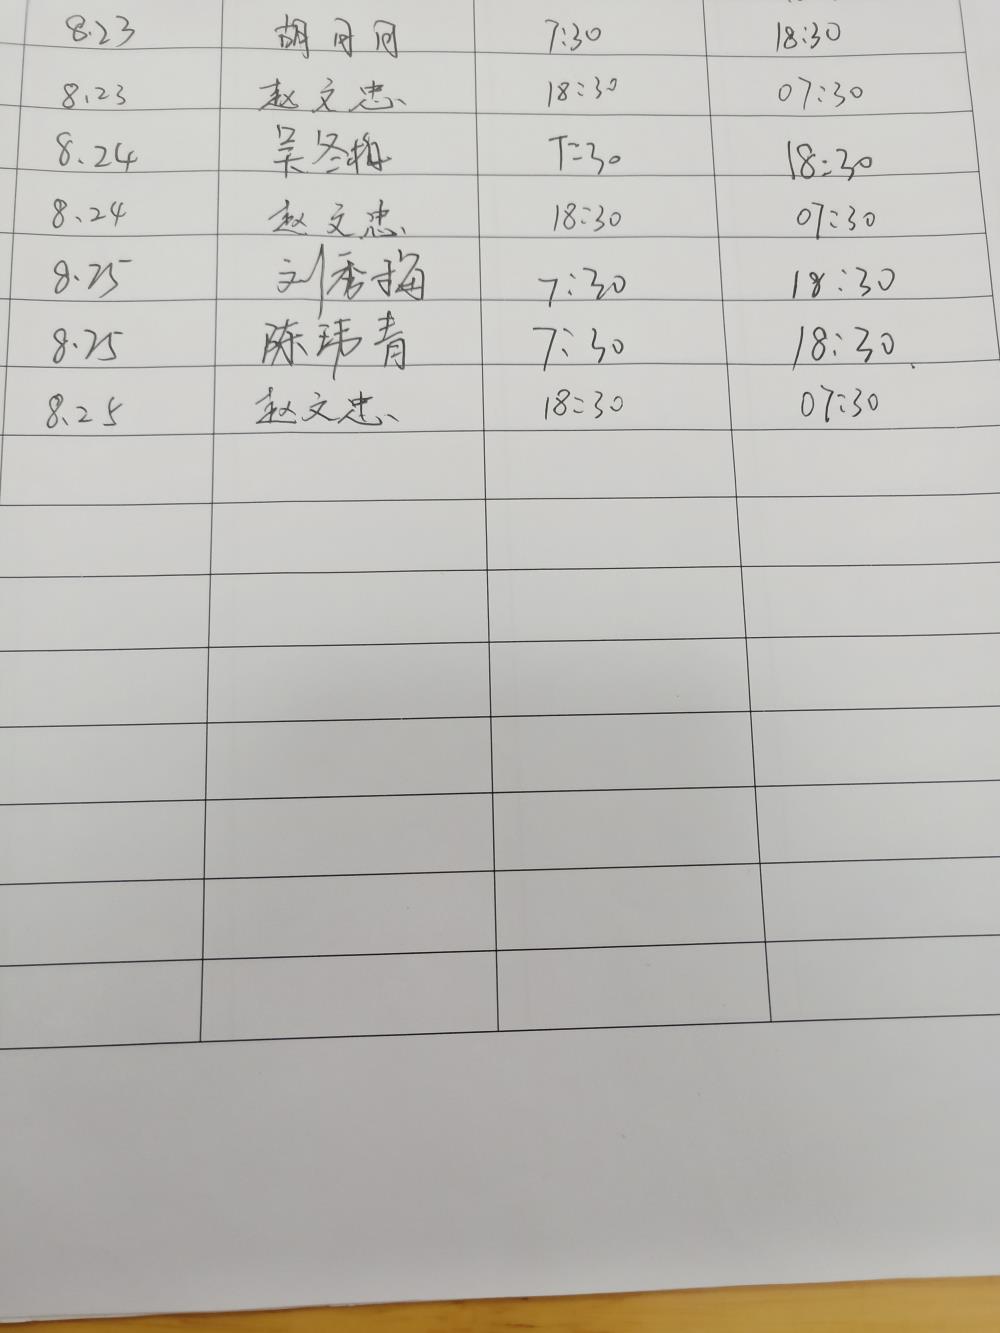 8.23 胡月月 7:30 18:30
8.23 赵文忠 18:30 07:30
8.24 吴冬梅 7:30 18:30
8.24 赵文忠 18:30 07:30
8.25 刘秀梅 7:30 18:30
8.25 陈玮青 7:30 18:30
8.25 赵文忠 18:30 07:30